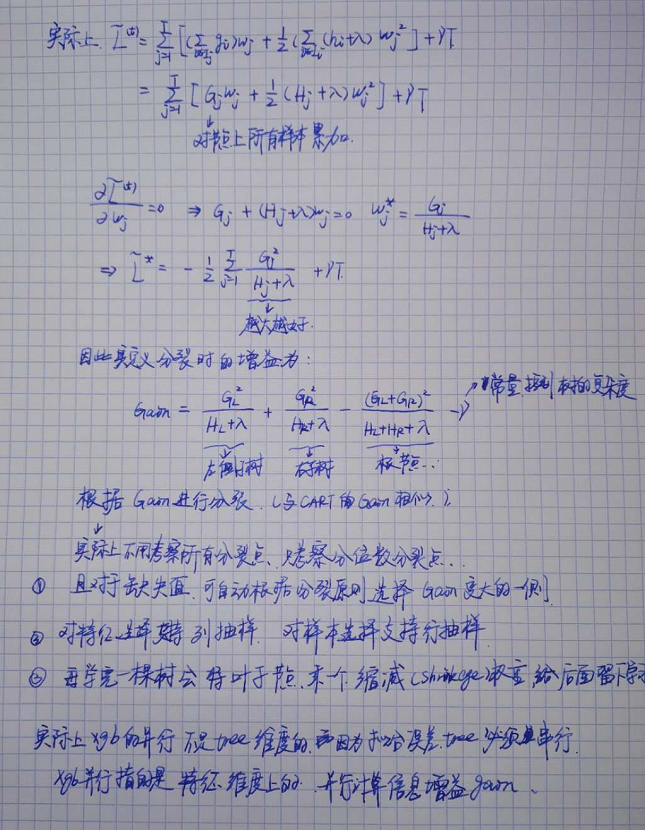 实际上 L̃^(t) = Σ_{j=1}^{T} [(Σ_{i∈I_j} g_i)w_j + 1/2 (Σ_{i∈I_j} (h_i+λ) w_j^2] + γT
= Σ_{j=1}^{T} [G_j w_j + 1/2 (H_j+λ) w_j^2] + γT
↓
对节点上所有样本累加.
∂L̃^(t)/∂w_j = 0 ⇒ G_j + (H_j+λ)w_j = 0 w_j^* = G_j/(H_j+λ)
⇒ L̃^* = - 1/2 Σ_{j=1}^{T} G_j^2/(H_j+λ) + γT.
↓
越大越好.
因此定义分裂时的增益为:
Gain = G_L^2/(H_L+λ) + G_R^2/(H_R+λ) - (G_L+G_R)^2/(H_L+H_R+λ) - γ → 常量控制树的复杂度
左侧子树 右子树 根节点..
根据 Gain 进行分裂. (与CART的Gain相似).
↓
实际上不用考察所有分裂点、只考察分位数分裂点...
① 且对于缺失值, 可自动根据分裂原则选择 Gain 更大的一侧
② 对特征选择支持列抽样. 对样本选择支持行抽样
③ 再学完一棵树会将叶子节点, 来个缩减(shrinkage)权重 给后面留下学
实际上xgb的并行不是tree维度的. 因为拟合误差, tree必须串行.
xgb并行指的是 特征维度上的 并行计算信息增益gain.